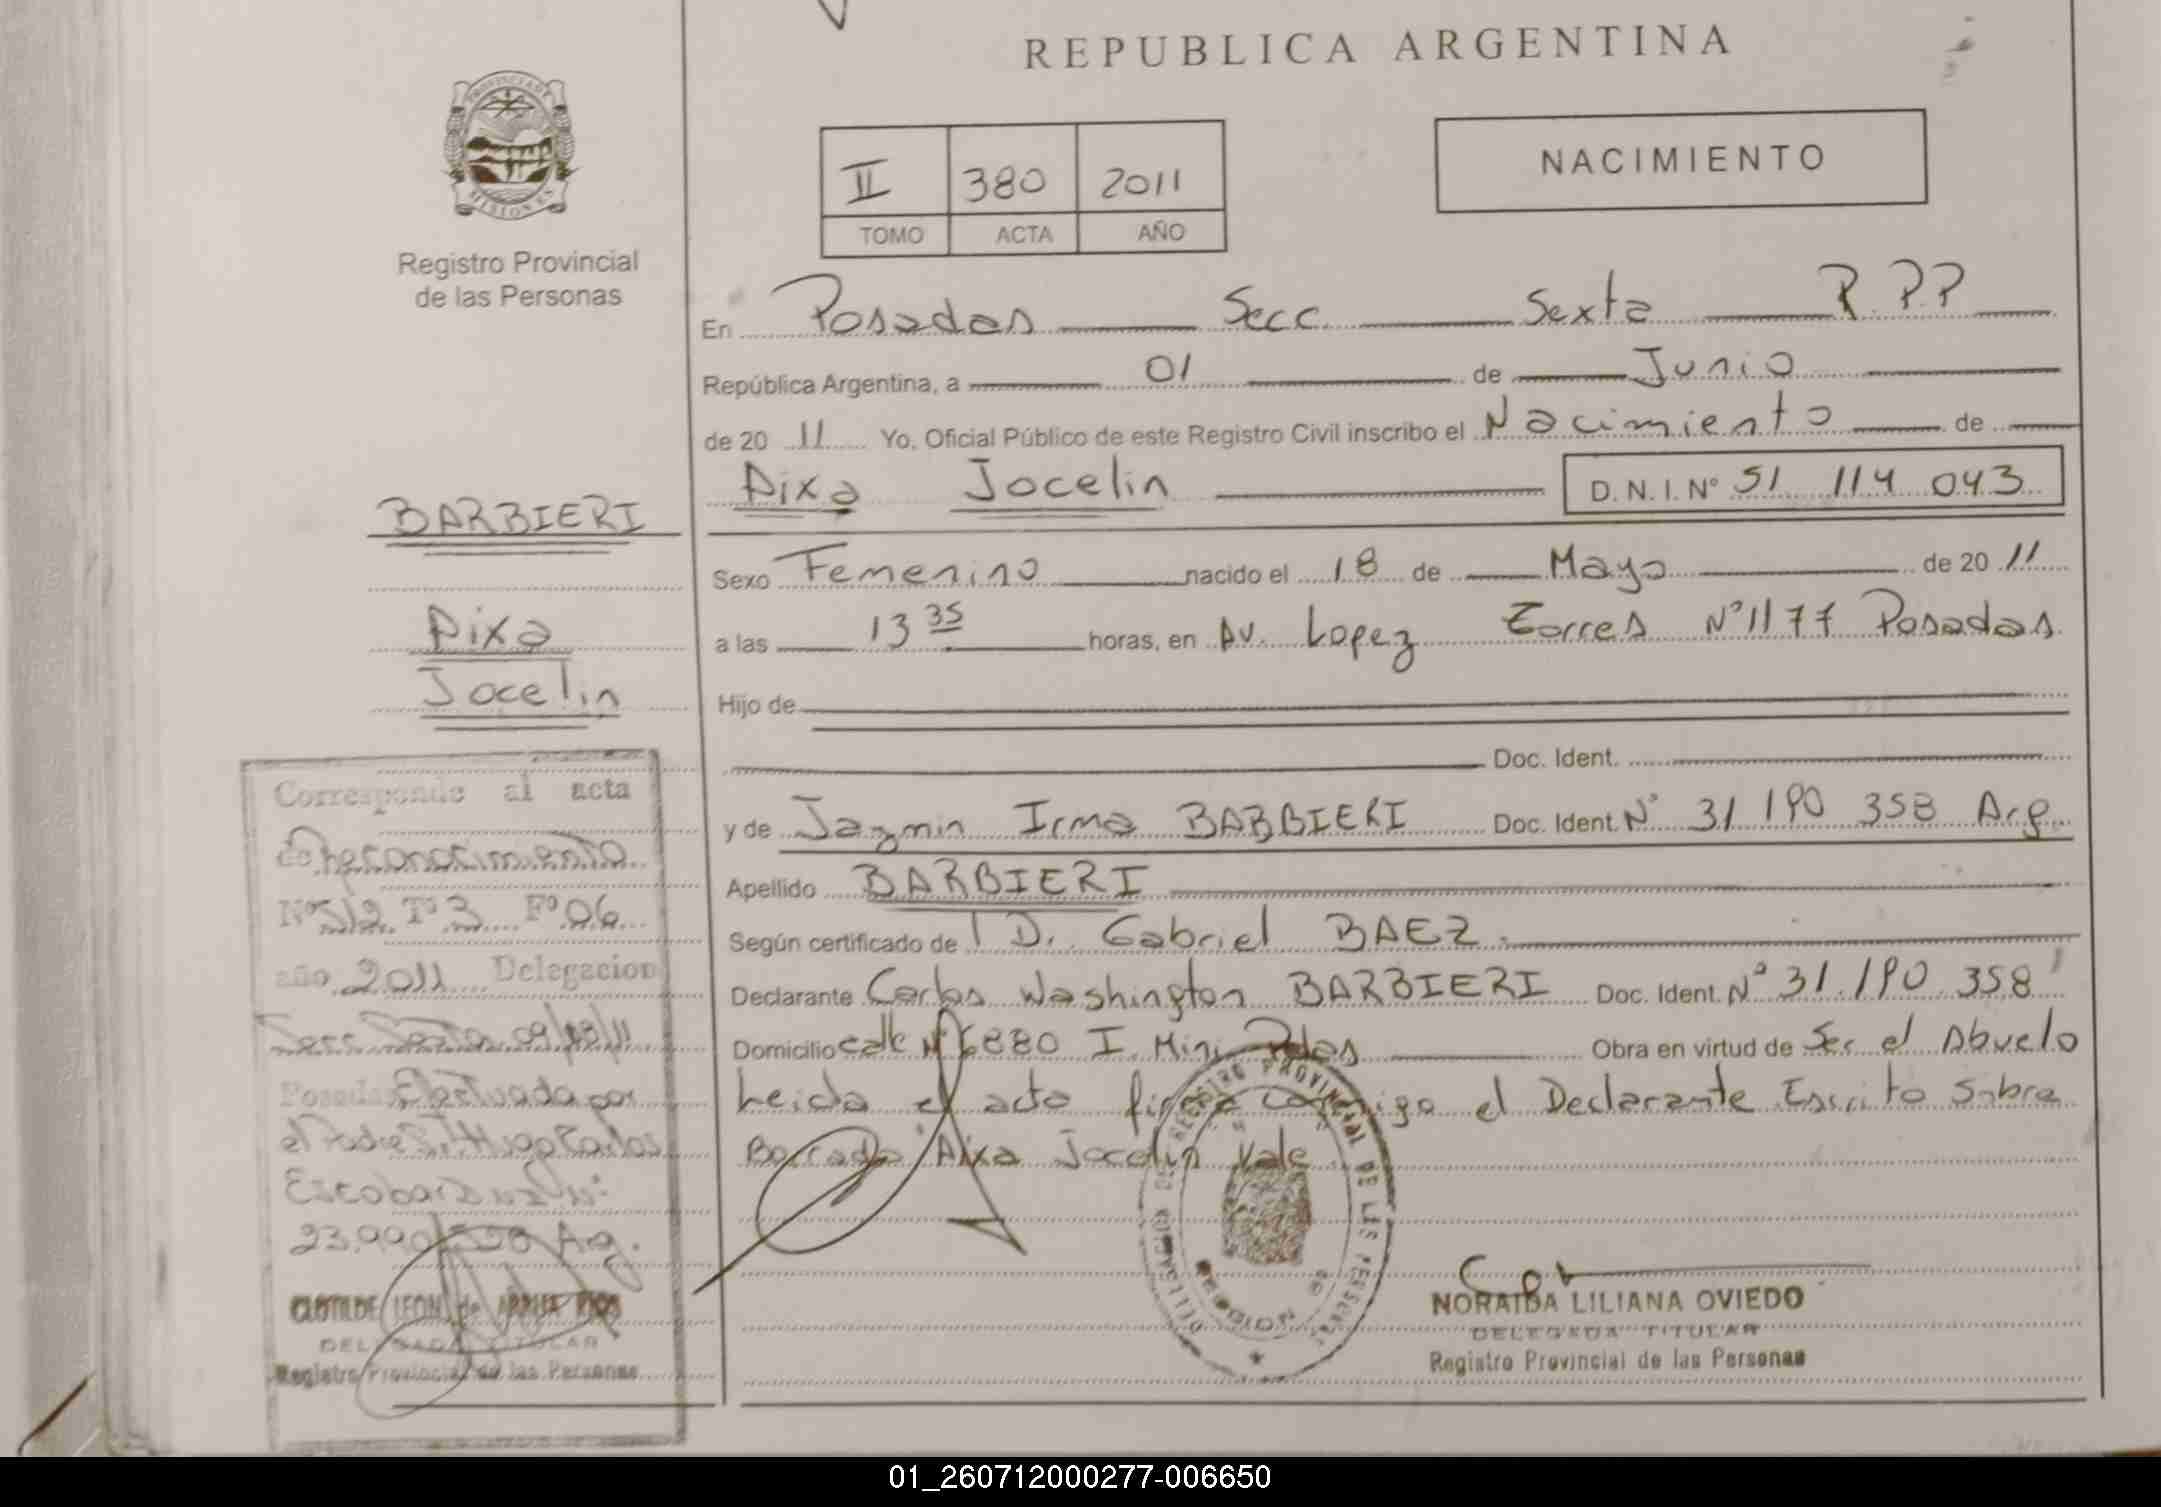 REPUBLICA ARGENTINA
PROVINCIA DE MISIONES
Registro Provincial
de las Personas
II 380 2011
TOMO ACTA AÑO
NACIMIENTO
En Posadas Secc. Sexta R.P.P
República Argentina, a 01 de Junio
de 2011 Yo, Oficial Público de este Registro Civil inscribo el Nacimiento de
Aixa Jocelin D.N.I.Nº 51 114 043
BARBIERI
Aixa
Jocelin
Sexo Femenino nacido el 18 de Mayo de 2011
a las 13 35 horas, en Av. Lopez Torres Nº 1177 Posadas
Hijo de
Doc. Ident.
y de Jazmin Irma BARBIERI Doc. Ident. Nº 31 190 358 Arg.
Apellido BARBIERI
Según certificado de D. Gabriel BAEZ.
Declarante Carlos Washington BARBIERI Doc. Ident. Nº 31.190.358
Domicilio calle Nº 6880 I. Mini Pdas Obra en virtud de Ser el Abuelo
Leida el acta firma conmigo el Declarante Escrito Sobre
Borrado Aixa Jocelin Vale
Corresponde al acta
de Reconocimiento
Nº 512 Tº 3 Fº 06
año 2011 Delegacion
Secc Sexta 09/
Posadas Efectuada por
el Padre Hugo
Escobar
23.990 Arg.
CLOTILDE LEON de
DELEGADA TITULAR
Registro Provincial de las Personas
DELEGACION DE REGISTRO PROVINCIAL DE LAS PERSONAS
NORAIDA LILIANA OVIEDO
DELEGADA TITULAR
Registro Provincial de las Personas
01_260712000277-006650